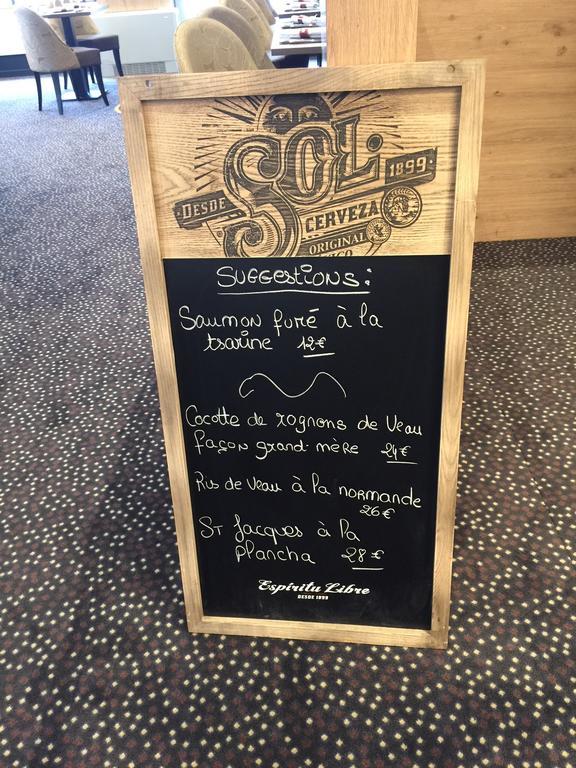 SOL.
DESDE
1899
CERVEZA
ORIGINAL
SUGGEStiONS:
Saumon fumé à la
tsarine 12€
Cocotte de rognons de Veau
façon grand-mère 24€
Ris de Veau à la normande
26€
ST Jacques à la
plancha 28€
Espíritu Libre
DESDE 1899